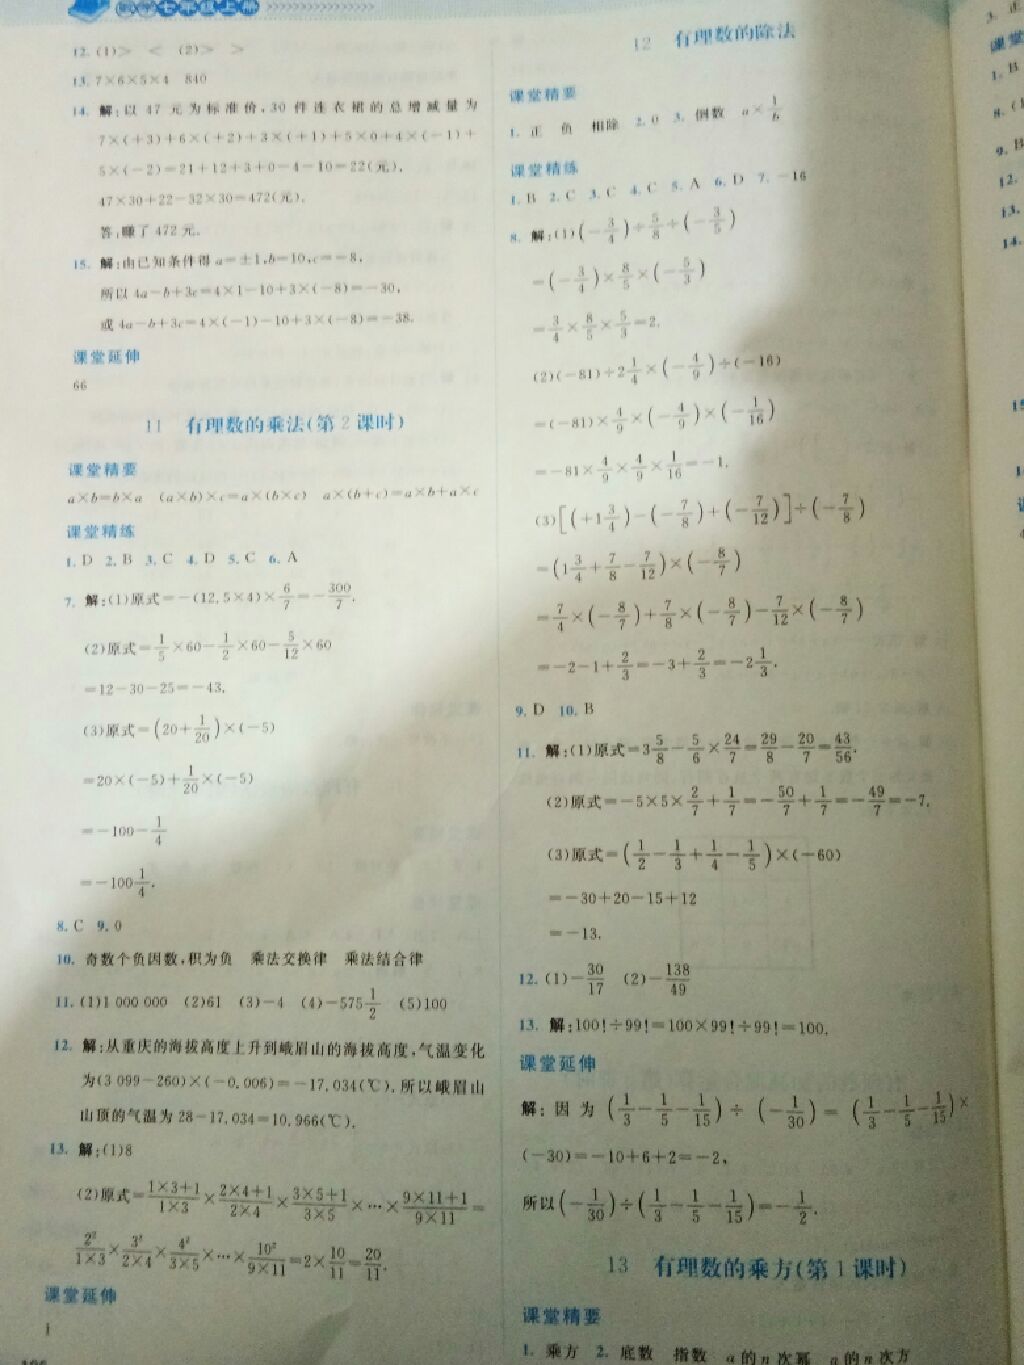 七年级上册
12. (1)＞ ＜ (2)＞ ＞
13. 7×6×5×4 840
14. 解:以 47 元为标准价,30 件连衣裙的总增减量为
7×(+3)+6×(+2)+3×(+1)+5×0+4×(-1)+
5×(-2)=21+12+3+0-4-10=22(元),
47×30+22-32×30=472(元).
答:赚了 472 元.
15. 解:由已知条件得 a=±1,b=10,c=-8,
所以 4a-b+3c=4×1-10+3×(-8)=-30,
或 4a-b+3c=4×(-1)-10+3×(-8)=-38.
课堂延伸
66
11 有理数的乘法(第 2 课时)
课堂精要
a×b=b×a (a×b)×c=a×(b×c) a×(b+c)=a×b+a×c
课堂精练
1. D 2. B 3. C 4. D 5. C 6. A
7. 解:(1)原式=-(12.5×4)×6/7=-300/7.
(2)原式=1/5×60-1/2×60-5/12×60
=12-30-25=-43.
(3)原式=(20+1/20)×(-5)
=20×(-5)+1/20×(-5)
=-100-1/4
=-100 1/4.
8. C 9. 0
10. 奇数个负因数,积为负 乘法交换律 乘法结合律
11. (1)1 000 000 (2)61 (3)-4 (4)-575 1/2 (5)100
12. 解:从重庆的海拔高度上升到峨眉山的海拔高度,气温变化
为(3 099-260)×(-0.006)=-17.034(℃).所以峨眉山
山顶的气温为 28-17.034=10.966(℃).
13. 解:(1)8
(2)原式=(1×3+1)/(1×3)×(2×4+1)/(2×4)×(3×5+1)/(3×5)×…×(9×11+1)/(9×11)=
2²/(1×3)×3²/(2×4)×4²/(3×5)×…×10²/(9×11)=2×10/11=20/11.
课堂延伸
1
12 有理数的除法
课堂精要
1. 正 负 相除 2. 0 3. 倒数 a×1/b
课堂精练
1. B 2. C 3. C 4. C 5. A 6. D 7. -16
8. 解:(1)(-3/4)÷5/8÷(-3/5)
=(-3/4)×8/5×(-5/3)
=3/4×8/5×5/3=2.
(2)(-81)÷2 1/4×(-4/9)÷(-16)
=(-81)×4/9×(-4/9)×(-1/16)
=-81×4/9×4/9×1/16=-1.
(3)[(+1 3/4)-(-7/8)+(-7/12)]÷(-7/8)
=(1 3/4+7/8-7/12)×(-8/7)
=7/4×(-8/7)+7/8×(-8/7)-7/12×(-8/7)
=-2-1+2/3=-3+2/3=-2 1/3.
9. D 10. B
11. 解:(1)原式=3 5/8-5/6×24/7=29/8-20/7=43/56.
(2)原式=-5×5×2/7+1/7=-50/7+1/7=-49/7=-7.
(3)原式=(1/2-1/3+1/4-1/5)×(-60)
=-30+20-15+12
=-13.
12. (1)-30/17 (2)-138/49
13. 解:100!÷99!=100×99!÷99!=100.
课堂延伸
解:因为 (1/3-1/5-1/15)÷(-1/30)=(1/3-1/5-1/15)×
(-30)=-10+6+2=-2,
所以(-1/30)÷(1/3-1/5-1/15)=-1/2.
13 有理数的乘方(第 1 课时)
课堂精要
1. 乘方 2. 底数 指数 a 的 n 次幂 a 的 n 次方
3. 正
课堂
1. B
8. (1
9. B
12.
13.
14.